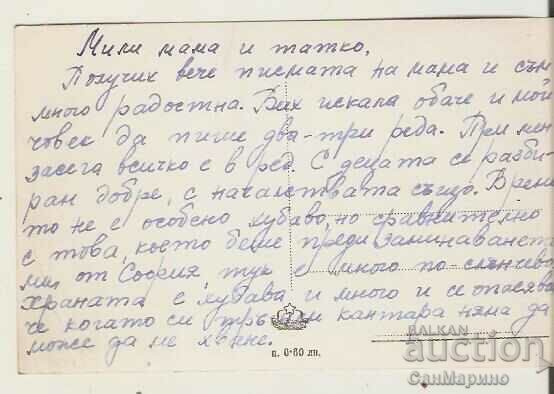 Мили мама и татко,
Получих вече писмата на мама и съм
много радостна. Бих искала обаче и мой
човек да пише два-три реда. При мен
засега всичко е в ред. С децата се разби-
рам добре, с началствата също. Време
то не е особено хубаво, но сравнително
с това, което беше преди заминаването
ми от София тук е много по-слънчево
Храната е хубава и много и се опасява
че когато си тръ м кантара няма да
може да ме хване.
ц. 0·60 лв.
BALKAN
auction
СанМарино